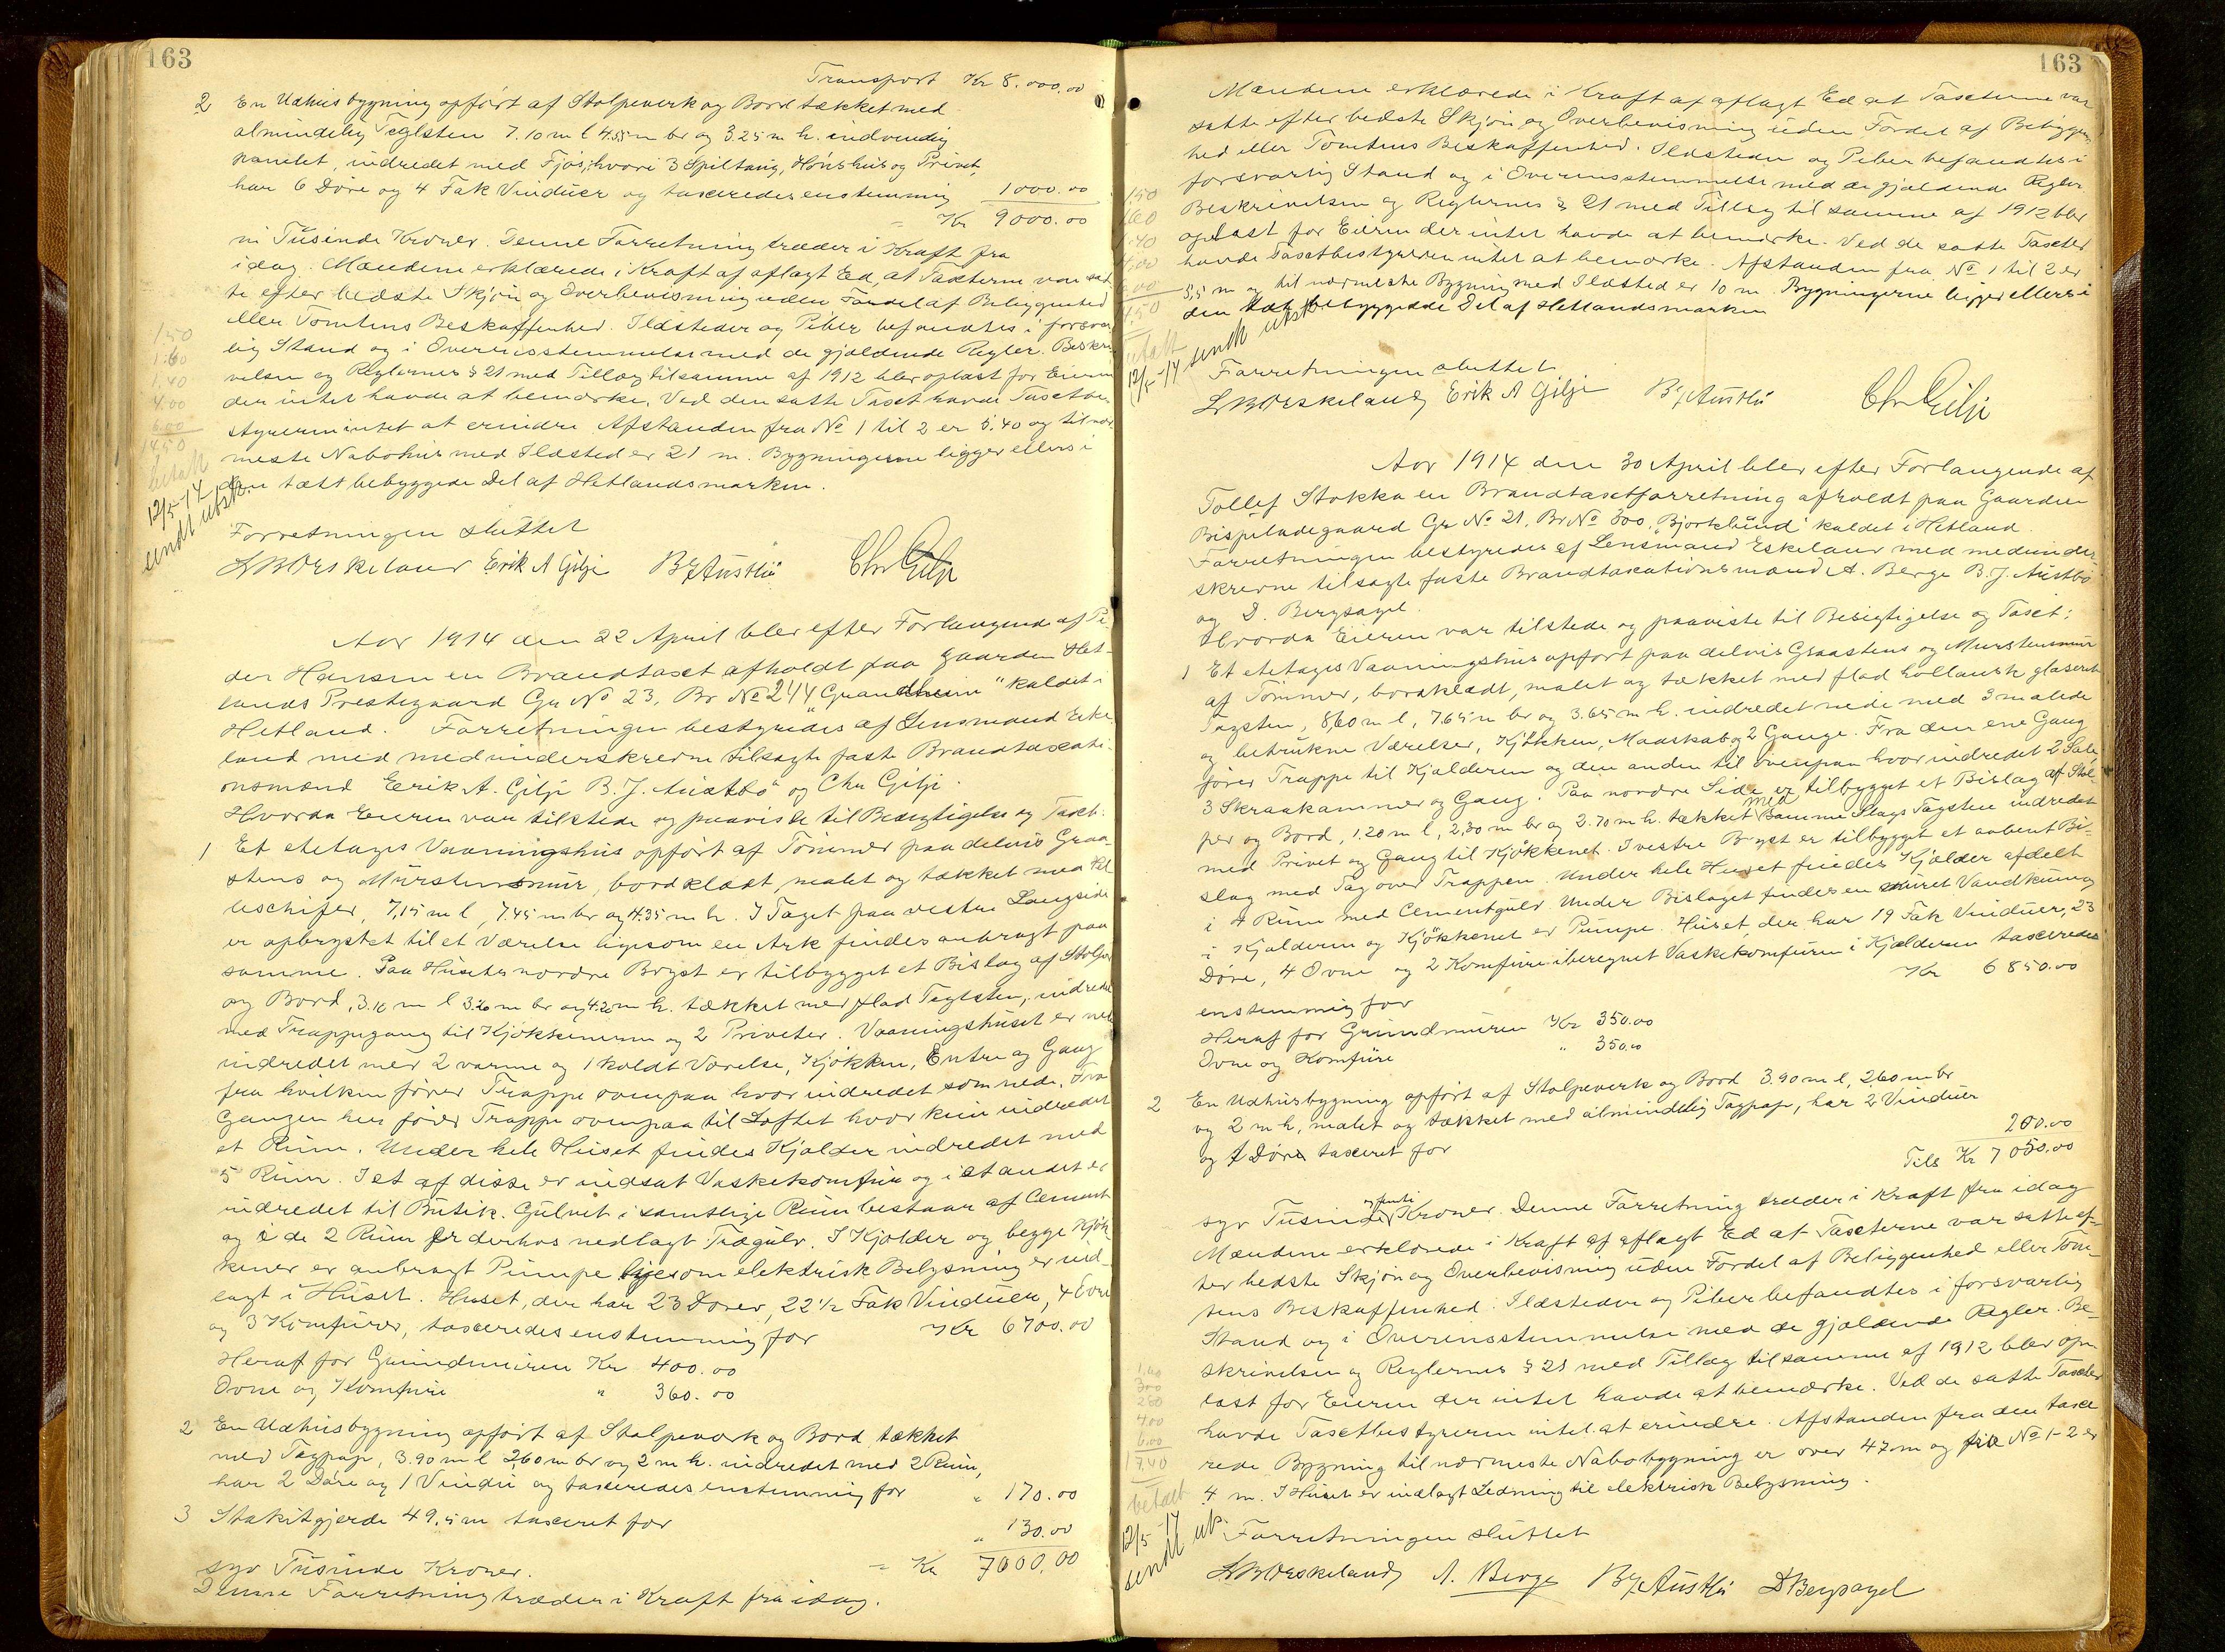 163
Transport Kr 8.000.00
2 En Udhusbygning opført af Stolpeverk og Bord tækket med
almindelig Teglsten 7.10 m l 4.55 m br og 3.25 m h. indvendig
panelet, indredet med Fjøs, hvori 3 Spiltaug, Hønshus og Privet,
har 6 Døre og 4 Fak Vinduer og taxeredes enstemmig 1000.00
= Kr 9000.00
ni Tusinde Kroner. Denne Forretning træder i Kraft fra
idag. Mændene erklærede i Kraft af aflagt Ed, at Taxterne var sat
te efter bedste Skjøn og Overbevisning uden Fordel af Beliggenhed
eller Tomtens Beskaffenhed. Ildsteder og Piber befandtes i forsvar
lig Stand og i Overensstemmelse med de gjældende Regler. Beskri
velsen og Reglernes § 21 med Tillæg til samme af 1912 blev oplæst for Eieren
der intet havde at bemærke. Ved den satte Taxt havde Taxtbe
styreren intet at erindre. Afstanden fra No 1 til 2 er 5.40 og til nær
meste Nabohus med Ildsted er 21 m. Bygningerne ligger ellers i
den tæt bebyggede Del af Hetlandsmarken.
1.50
1.60
1.40
4.00
6.00
14.50
betalt
12/5-14
sendt utsk.
Forretningen sluttet
LBOEskeland Erik A Gilje BJAustbø Chr Gilje
Aar 1914 den 22 April blev efter Forlangende af Pe
der Hansen en Brandtaxt afholdt paa Gaarden Het-
lands Prestegaard Gr No 23, Br No 244 "Grandheim" kaldet i
Hetland. Forretningen bestyredes af Lensmand Eske
land med medunderskrevne tilsagte faste Brandtaxati-
onsmænd Erik A. Gilje B. J. Austbø og Chr Gilje.
Hvorda Eieren var tilstede og paaviste til Besigtigelse og Taxt:
1 Et etetages Vaaningshus opført af Tømmer paa delvis Graa-
stens og Murstensmur, bordklædt, malet og tækket med Hel
leskifer, 7,15 m l, 7.45 m br og 4.35 m h. I Taget paa vestre Langside
er opbrystet til et Værelse ligesom en Ark findes anbragt paa
samme. Paa Husets nordre Bryst er tilbygget et Bislag af Stolper
og Bord, 3.10 m l 3.20 m br og 4.20 m h. tækket med flad Teglsten, indredet
med Trappegang til Kjøkkenerne og 2 Priveter. Vaaningshuset er nede
indredet med 2 varme og 1 koldt Værelse, Kjøkken, Entre og Gang
fra hvilken fører Trappe ovenpaa hvor indredet som nede. Fra
Gangen her fører Trappe ovenpaa til Loftet hvor kun indredet
et Rum. Under hele Huset findes Kjælder indredet med
5 Rum. I et af disse er indsat Vaskekomfur og i et andet er
indredet til Butik. Gulvet i samtlige Rum bestaar af Cement
og i de 2 Rum er derhos nedlagt Trægulv. I Kjælder og begge Kjøk
kener er anbragt Pumpe ligesom elektrisk Belysning er ind-
lagt i Huset. Huset, der har 23 Dører, 22 1/2 Fak Vinduer, 4 Ovne
og 3 Komfurer, taxeredes enstemmig for Kr 6700.00
Heraf for Grundmuren Kr 400.00
Ovne og Komfure " 360.00
2 En Udhusbygning opført af Stolpeverk og Bord tækket
med Tagpap, 3.90 m l 2,60 m br og 2 m h. indredet med 2 Rum,
har 2 Døre og 1 Vindu og taxeredes enstemmig for " 170.00
3 Stakitgjerde 49.5 m taxeret for " 130.00
syv Tusinde Kroner. = Kr 7000.00
Denne Forretning træder i Kraft fra idag.
163
Mændene erklærede i Kraft af aflagt Ed at Taxterne var
satte efter bedste Skjøn og Overbevisning uden Fordel af Beliggen
hed eller Tomtens Beskaffenhed. Ildsteder og Piber befandtes i
forsvarlig Stand og i Overensstemmelse med de gjældende Regler.
Beskrivelsen og Reglernes § 21 med Tillæg til samme af 1912 blev
oplæst for Eieren der intet havde at bemærke. Ved de satte Taxter
havde Taxtbestyreren intet at bemærke. Afstanden fra No 1 til 2 er
3,5 m og til nærmeste Bygning med Ildsted er 10 m. Bygningerne ligger ellers i
den tæt bebyggede Del af Hetlandsmarken
1.50
1.60
1.40
4.00
6.00
14.50
betalt
12/5-14 sendt utsk.
Forretningen sluttet
LBOEskeland Erik A Gilje BJAustbø Chr Gilje
Aar 1914 den 30 April blev efter Forlangende af
Tollef Stokka en Brandtaxtforretning afholdt paa Gaarden
Bispeladegaard Gr No 21, Br No 300, "Bjorklund" kaldet i Hetland.
Forretningen bestyredes af Lensmand Eskeland med medunder-
skrevne tilsagte faste Brandtaxationsmænd A. Berge B. J. Austbø
og D. Bergsagel.
Hvorda Eieren var tilstede og paaviste til Besigtigelse og Taxt:
1 Et etetages Vaaningshus opført paa delvis Graastens og Murstensmur
af Tømmer, bordklædt, malet og tækket med flad hollansk glaseret
Tagsten, 8,60 m l, 7.65 m br og 3.65 m h. indredet nede med 3 malede
og betrukne Værelser, Kjøkken, Madskab og 2 Gange. Fra den ene Gang
fører Trappe til Kjælderen og den anden til ovenpaa hvor indredet 2 Sale
3 Skraakammer og Gang. Paa nordre Side er tilbygget et Bislag af Stol-
per og Bord, 1.20 m l, 2,30 m br og 2.70 m h. tækket med samme Slags Tagsten indredet
med Privet og Gang til Kjøkkenet. I vestre Bryst er tilbygget et aabent Bi-
slag med Tag over Trappen. Under hele Huset findes Kjælder afdelt
i 4 Rum med Cementgulv. Under Bislaget findes en muret Vandkum og
i Kjælderen og Kjøkkenet er Pumpe. Huset, der har 19 Fak Vinduer, 23
Døre, 4 Ovne og 2 Komfure iberegnet Vaskekomfuren i Kjælderen taxeredes
enstemmig for Kr 6850.00
Heraf for Grundmuren Kr 350.00
Ovne og Komfure " 350.00
2 En Udhusbygning opført af Stolpeverk og Bord 3.90 m l, 2,60 m br
og 2 m h, malet og tækket med almindelig Tagpap, har 2 Vinduer
og 1 Døre taxeret for 200.00
Tils Kr 7050.00
syv Tusinde og femti Kroner. Denne Forretning træder i Kraft fra idag
Mændene erklærede i Kraft af aflagt Ed at Taxterne var satte ef-
ter bedste Skjøn og Overbevisning uden Fordel af Beliggenhed eller Tom-
tens Beskaffenhed. Ildsteder og Piber befandtes i forsvarlig
Stand og i Overensstemmelse med de gjældende Regler. Be-
skrivelsen og Reglernes § 21 med Tillæg til samme af 1912 blev op
læst for Eieren der intet havde at bemærke. Ved de satte Taxter
havde Taxtbestyreren intet at erindre. Afstanden fra den taxe
rede Bygning til nærmeste Nabobygning er over 47 m og fra No 1-2 er
4 m. I Huset er indlagt Ledning til elektrisk Belysning.
4.00
6.00
17.40
betalt
12/5-14
sendt ut.
Forretningen sluttet
LBOEskeland A. Berge BJAustbø D Bergsagel